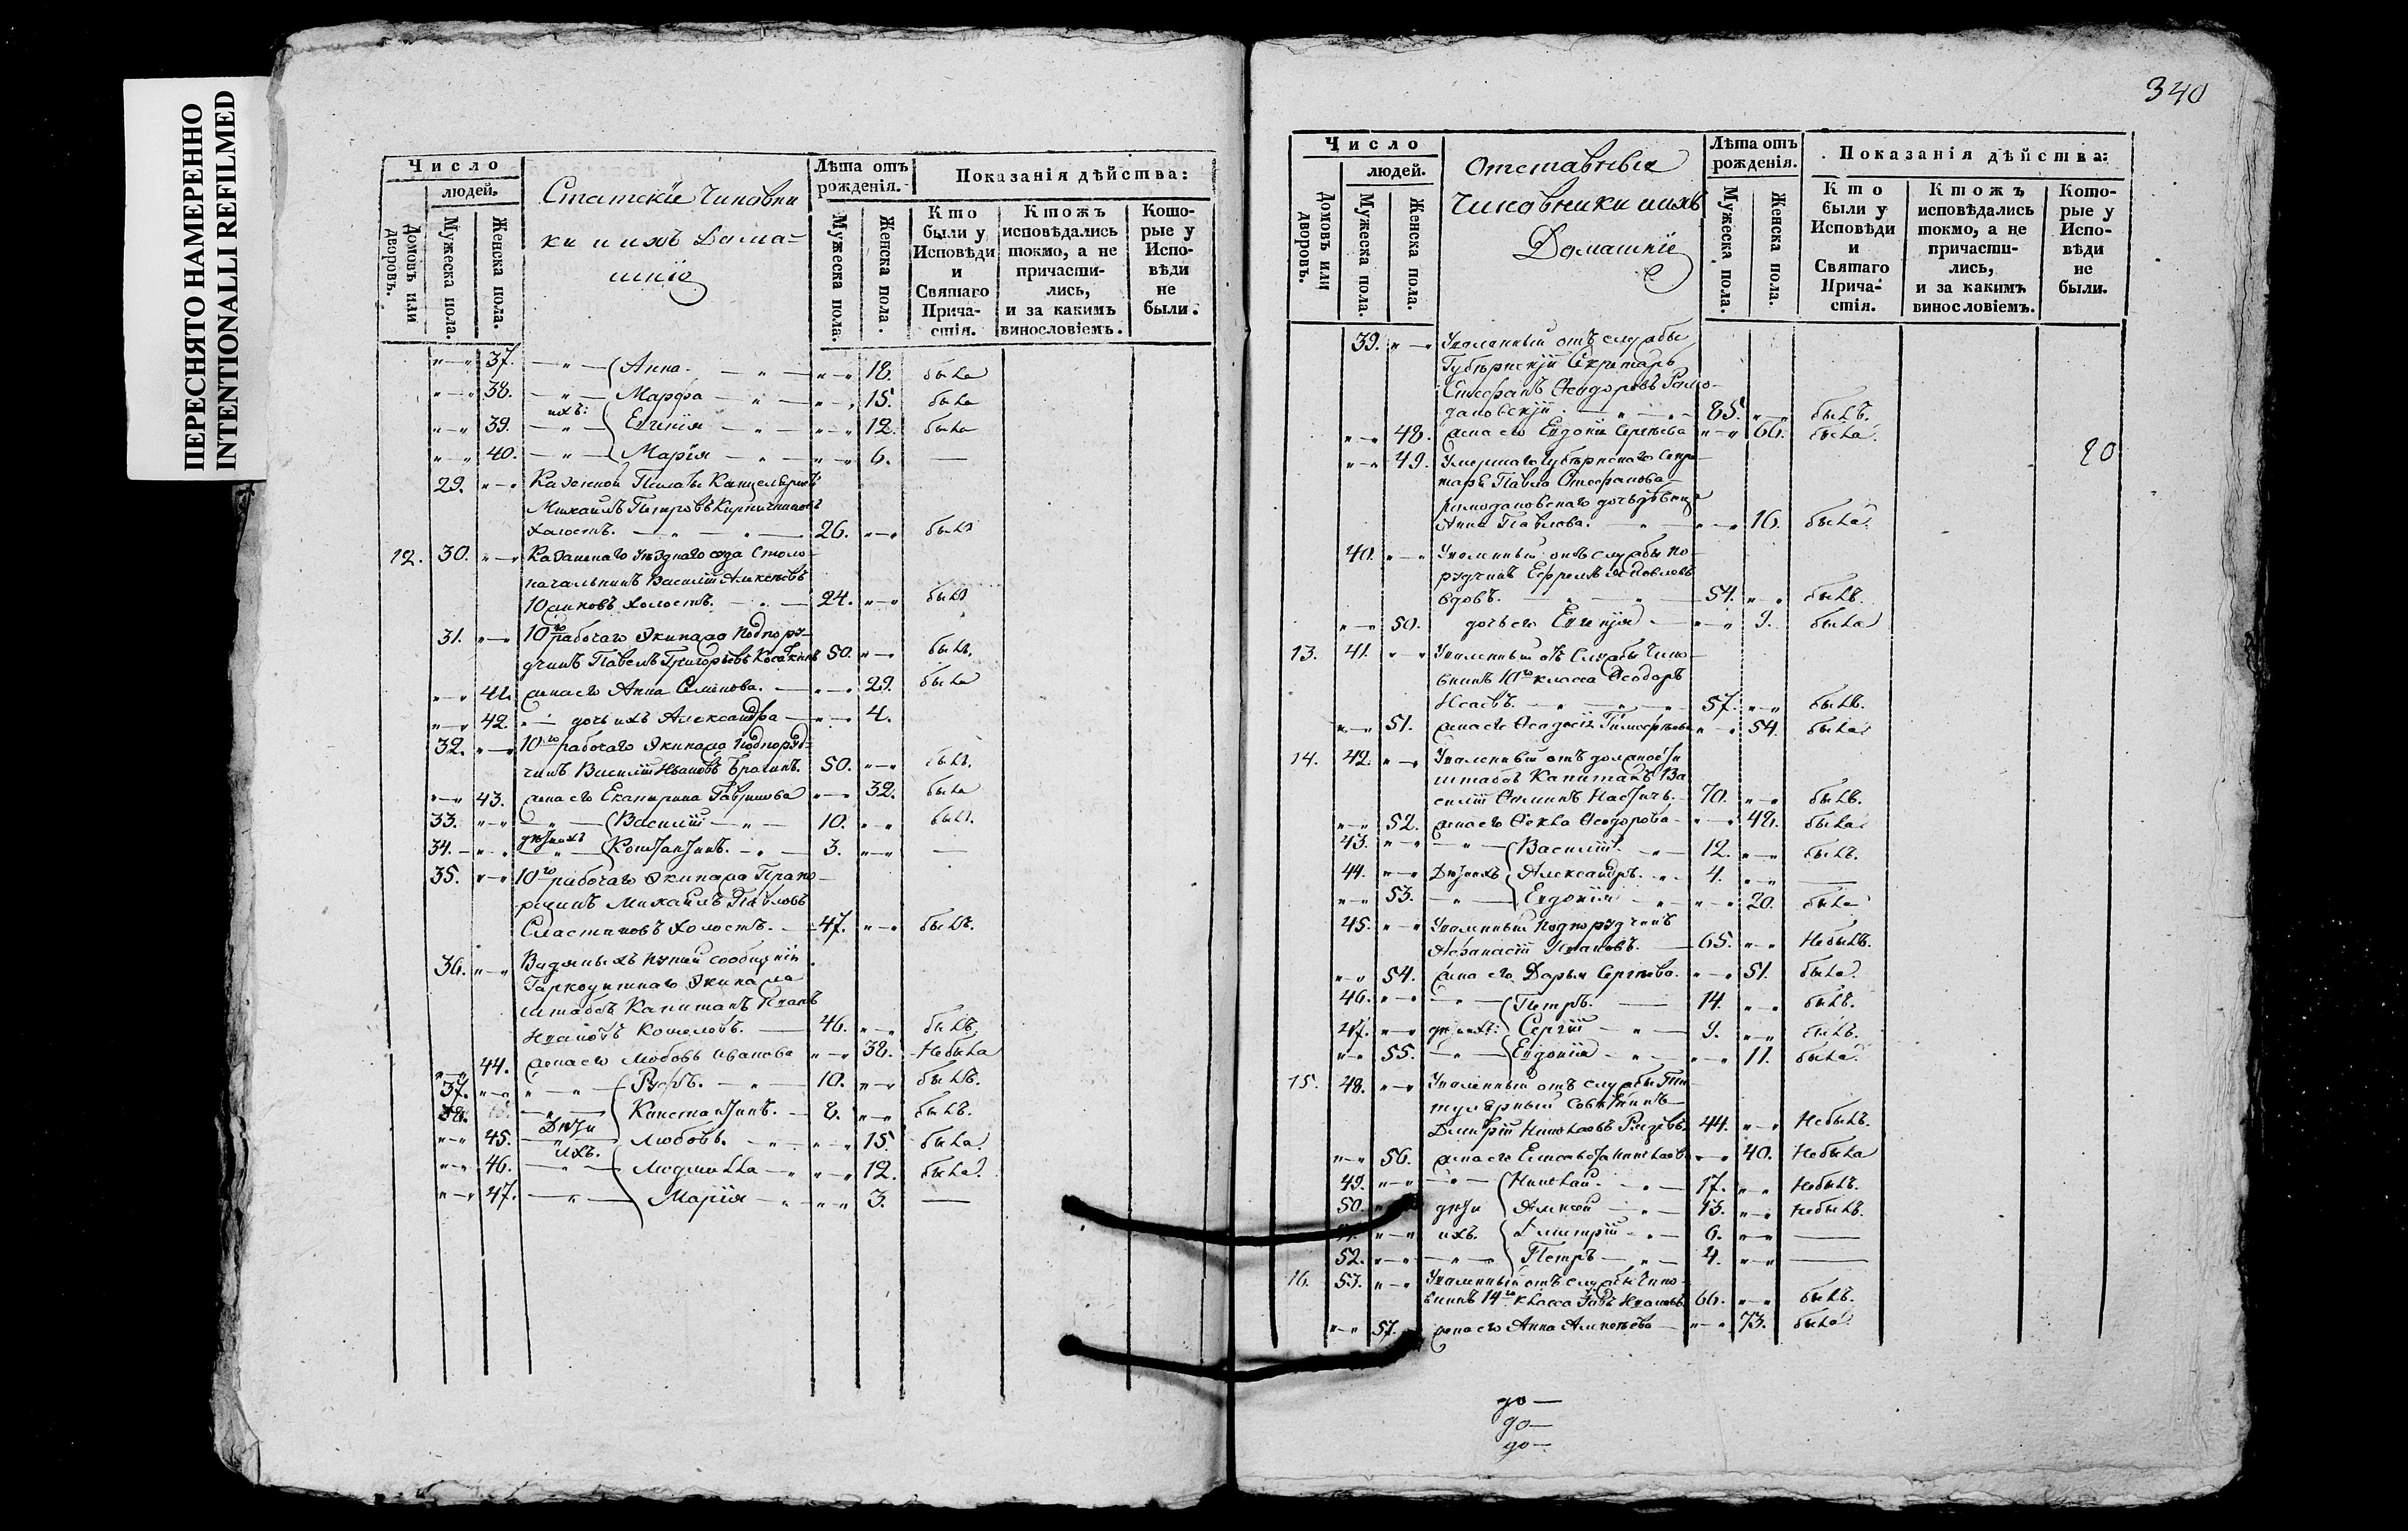 ПЕРЕСНЯТО НАМЕРЕННО
INTENTIONALLI REFILMED
Число
людей.
Домовъ или дворовъ.
Мужеска пола.
Женска пола.
Статскіе Чиновни
ки и ихъ Дома-
шніе
Лѣта отъ рожденія.
Мужеска пола.
Женска пола.
Показанія дѣйства:
Кто были у Исповѣди и Святаго Прича-стія.
Ктожъ исповѣдались токмо, а не причасти-лись, и за какимъ винословіемъ.
Кото-рые у Испо-вѣди не были.
37. Анна 18. была
38. Марфа 15. была
ихъ:
39. Евгенія 12. была
40. Марія 6. —
29. Казенной Палаты
Михаилъ Петровъ
холостъ. 26. былъ
12. 30. уѣзднаго суда Столо-
начальникъ Василій Алексѣевъ
холостъ. 24. былъ
31. 10го рабочаго Экипажа Подпору-
чикъ Павелъ Григорьевъ 50. былъ.
41. жена его Анна Семенова. 29. была
42. дочь ихъ Александра 4.
32. 10го рабочаго Экипажа Подпору-
чикъ Василій Ивановъ 50. былъ.
43. жена его Екатерина Гаврилова 32. была
33. Василій 10. былъ.
дѣти ихъ
34. Константинъ. 3. —
35. 10го рабочаго Экипажа Прапо-
рщикъ Михаилъ Павловъ
Сластниковъ холостъ. 47. былъ.
36. Водяныхъ путей сообщенія
Экипажа
штабсъ Капитанъ Иванъ
Ивановъ 46. былъ.
44. жена его Любовь Иванова 38. Небыла
37. 10. былъ.
38. Константинъ. 8. былъ.
Дѣти
45. Любовь. 15. была
ихъ.
46. Людмилла 12. была
47. Марія 3. —
340
Число
людей.
Домовъ или дворовъ.
Мужеска пола.
Женска пола.
Отставныя
Чиновники и ихъ
Домашніе
Лѣта отъ рожденія.
Мужеска пола.
Женска пола.
Показанія дѣйства:
Кто были у Исповѣди и Святаго Прича-стія.
Ктожъ исповѣдались токмо, а не причасти-лись, и за какимъ винословіемъ.
Кото-рые у Испо-вѣди не были.
39. Уволенный отъ службы
Губернскій Секретарь
Стефанъ Ѳедоровъ Ромо-
дановскій 85. былъ.
48. жена его Евдокія Сергѣева 66. была.
20
49. Умершаго Губернскаго Секре-
таря Павла Стефанова
Ромодановскаго дочь дѣвица
Анна Павлова. 16. была.
40. Уволенный отъ службы По-
ручикъ Ефремъ Яковлевъ
вдовъ. 54. былъ.
50. дочь его Евгенія 9. была
13. 41. Уволенный отъ Службы Чино-
вникъ 10го класса Ѳеодоръ
Исаевъ. 57. былъ.
51. жена его Ѳеодосія Тимоѳеева 54. была
14. 42. Уволенный отъ должности
штабсъ Капитанъ Ва
силій 70. былъ.
52. жена его Ѳекла Ѳеодорова 48. была
43. Василій. 12. былъ.
44. Дѣти ихъ Александръ. 4. —
53. Евдокія 20. была
45. Уволенный Подпоручикъ
Аѳанасій Ивановъ. 65. Небылъ.
54. жена его Дарья Сергѣева. 51. была.
46. Петръ. 14. былъ.
47. дѣти ихъ: Сергій 9. былъ.
55. Евдокія 11. была.
15. 48. Уволенный отъ службы Ти-
тулярный Совѣтникъ
Дмитрій Николаевъ 44. Небылъ.
56. жена его Елисавета Николаева 40. Небыла
49. Николай. 17. Небылъ.
50. дѣти Алексѣй 13. Небылъ.
ихъ. Дмитрій 6. —
52. Петръ 4. —
16. 53. Уволенный отъ службы Чино-
вникъ 14го класса Ивановъ 66. былъ.
57. жена его Анна Алексѣева 73. была.
до —
до —
до —